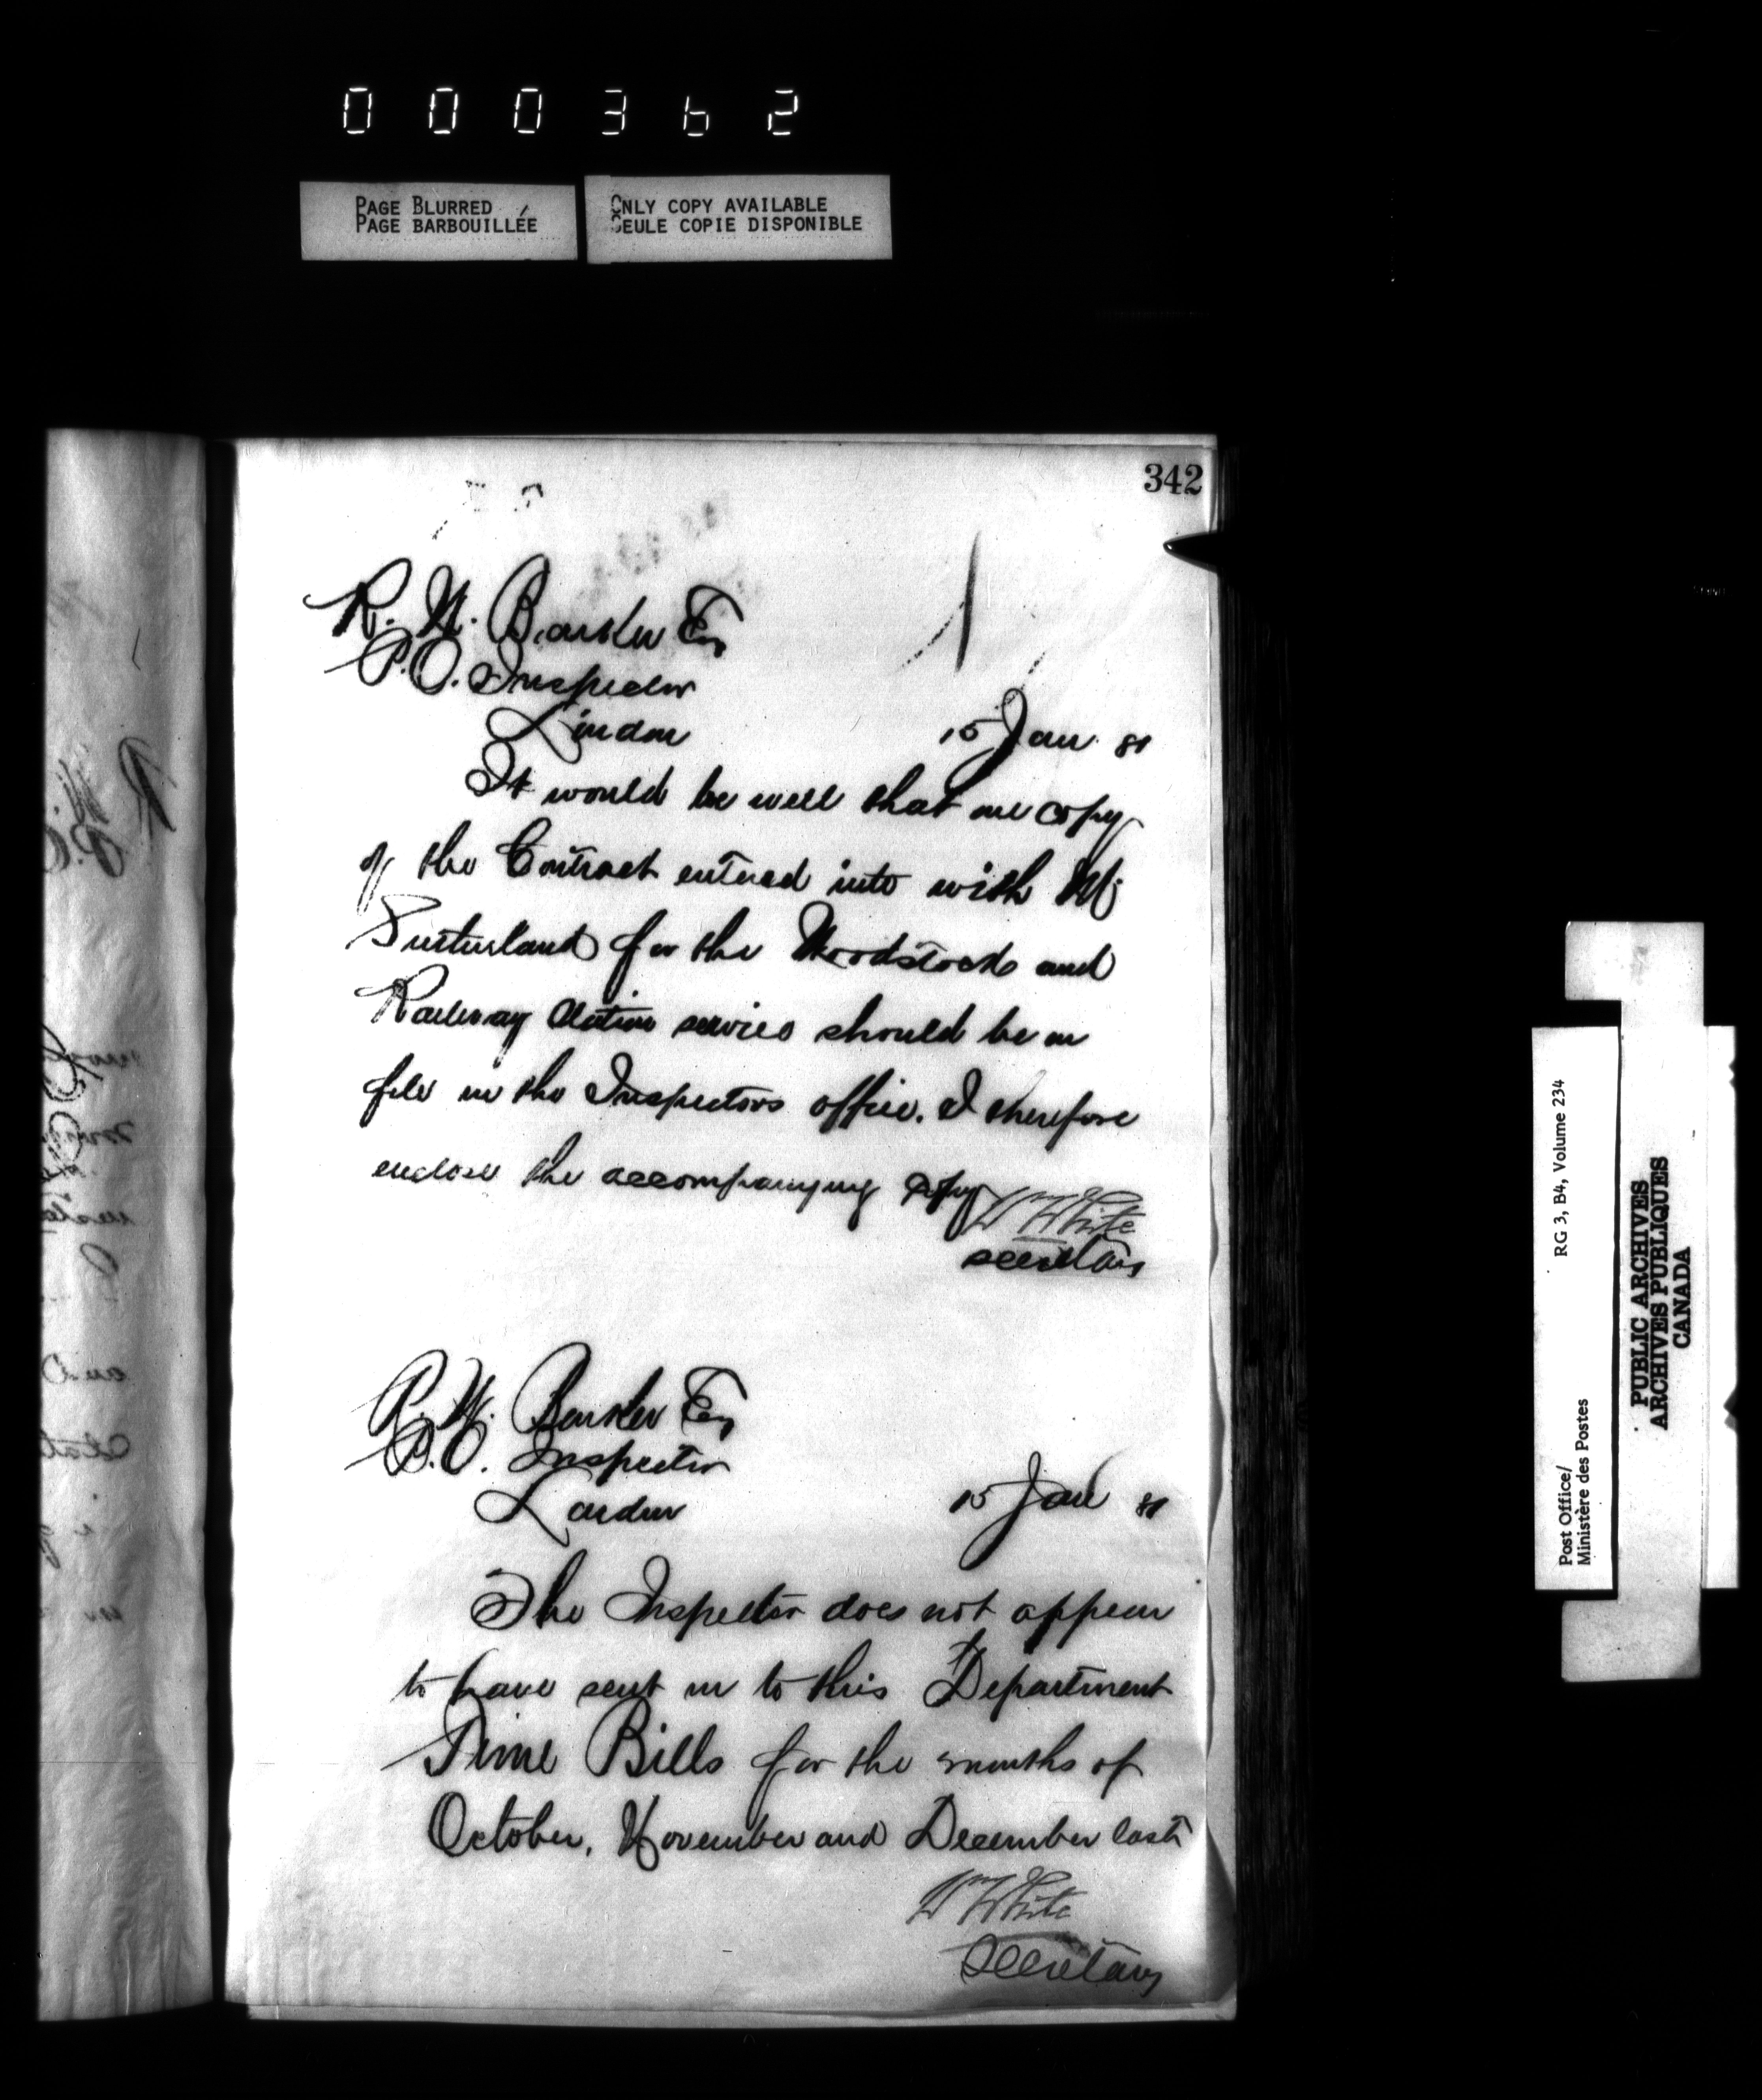 000362
PAGE BLURRED
PAGE BARBOUILLÉE
ONLY COPY AVAILABLE
SEULE COPIE DISPONIBLE
342
R. W. Barker Esq
P.O. Inspector
London
15 Jan. 81
It would be well that one copy
of the Contract entered into with Mr
Sutherland for the Woodstock and
Railway Station service should be on
file in the Inspectors office. I therefore
enclose the accompanying copy
Wm White
Secretary
R. W. Barker Esq
P.O. Inspector
London
15 Jan 81
The Inspector does not appear
to have sent in to this Department
Time Bills for the months of
October, November and December last
Wm White
Secretary
Post Office/
Ministère des Postes
RG 3, B4, Volume 234
PUBLIC ARCHIVES
ARCHIVES PUBLIQUES
CANADA